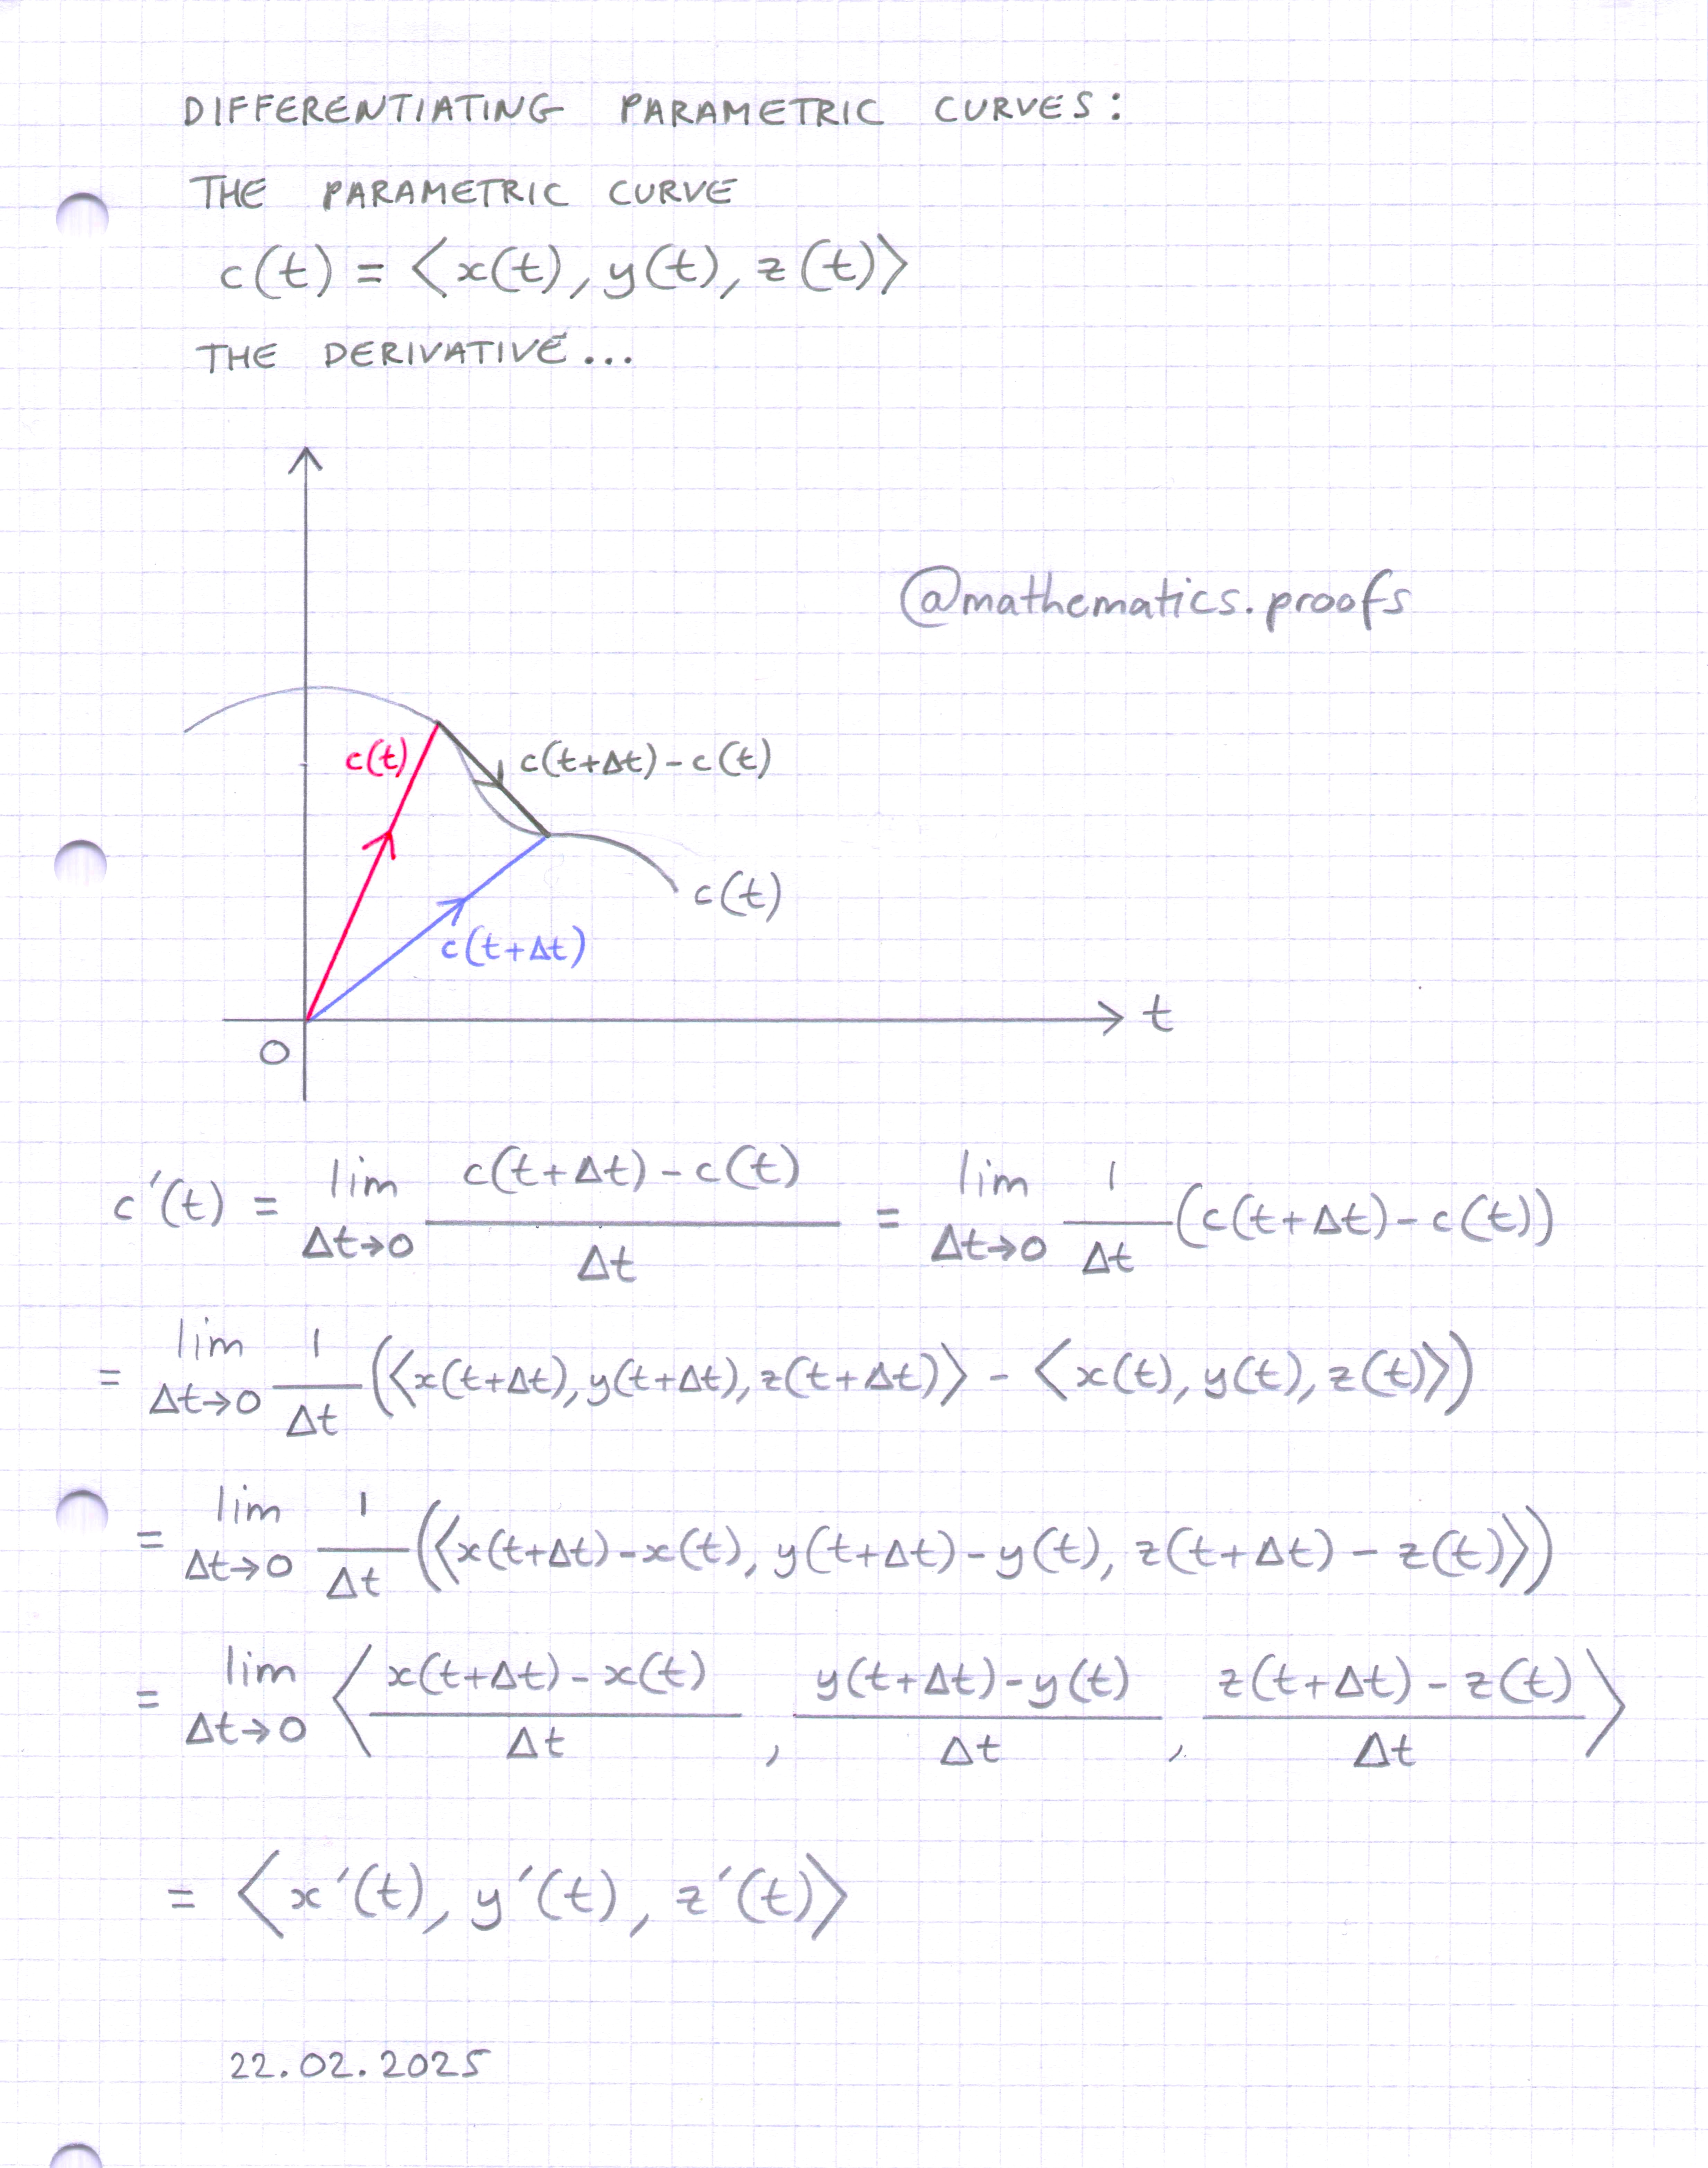 DIFFERENTIATING PARAMETRIC CURVES:
THE PARAMETRIC CURVE
c(t) = ⟨x(t), y(t), z(t)⟩
THE DERIVATIVE...
@mathematics.proofs
c(t)
c(t+Δt)-c(t)
c(t)
c(t+Δt)
t
O
c′(t) = lim Δt→0 (c(t+Δt)-c(t))/Δt = lim Δt→0 1/Δt (c(t+Δt)-c(t))
= lim Δt→0 1/Δt (⟨x(t+Δt), y(t+Δt), z(t+Δt)⟩ - ⟨x(t), y(t), z(t)⟩)
= lim Δt→0 1/Δt (⟨x(t+Δt)-x(t), y(t+Δt)-y(t), z(t+Δt)-z(t)⟩)
= lim Δt→0 ⟨(x(t+Δt)-x(t))/Δt, (y(t+Δt)-y(t))/Δt, (z(t+Δt)-z(t))/Δt⟩
= ⟨x′(t), y′(t), z′(t)⟩
22.02.2025